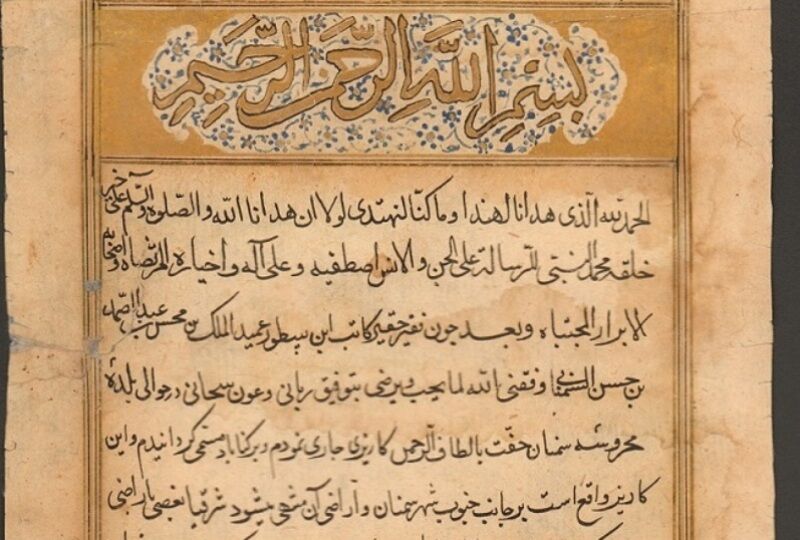 بسم الله الرحمن الرحيم
الحمد لله الذی هدانا لهذا وما کنا لنهتدی لولا ان هدانا الله والصلوة والسلم علی خیر
خلقه محمد للرسالة علی الجن والانس اصطفیه وعلی آله واخیاره المرتضاه واصحابه
الابرار المجتباه وبعد چون فقیر حقیر کاتب این سطور عمید الملک بن محسن بن عبد الصمد
بن حسن السمنانی وفقنی الله لما یحب ویرضی بتوفیق ربانی وعون سبحانی در حوالی بلدۀ
محروسه سمنان حفت بالطاف الرحمن کاریزی جاری نمودم وبرکناباد مسمی گردانیدم واین
کاریز واقع است بر جانب جنوب شهر سمنان واراضی آن منتهی میشود شرقیا بعضی باراضی